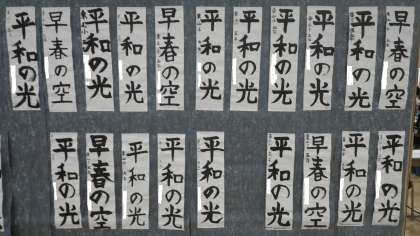 平和の光
早春の空
平和の光
平和の光
早春の空
平和の光
平和の光
平和の光
平和の光
平和の光
早春の空
平和の光
早春の空
平和の光
平和の光
平和の光
平和の光
早春の空
平和の光
平和の光